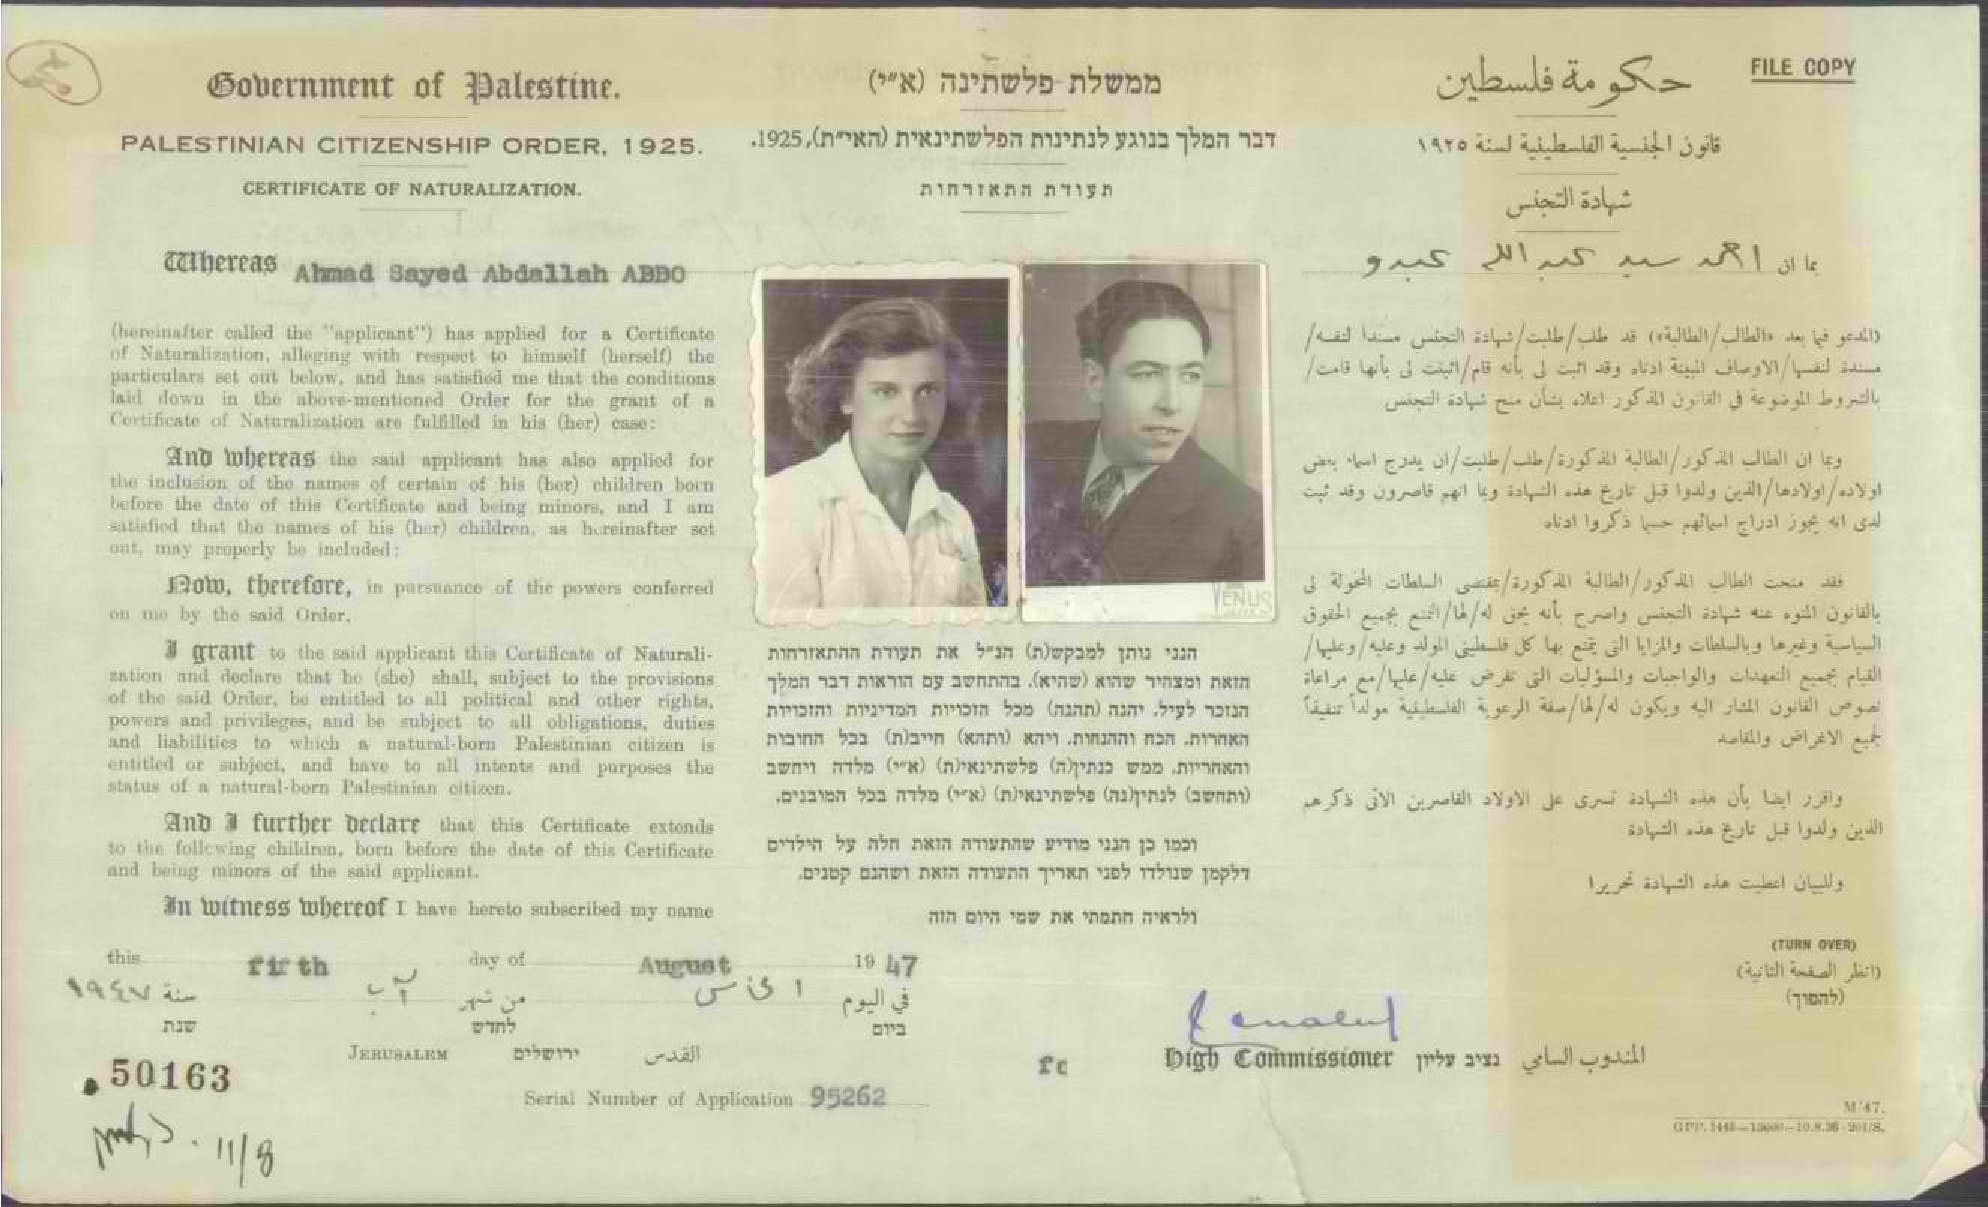 FILE COPY
Government of Palestine.
PALESTINIAN CITIZENSHIP ORDER, 1925.
CERTIFICATE OF NATURALIZATION.
Whereas Ahmad Sayed Abdallah ABDO
(hereinafter called the "applicant") has applied for a Certificate
of Naturalization, alleging with respect to himself (herself) the
particulars set out below, and has satisfied me that the conditions
laid down in the above-mentioned Order for the grant of a
Certificate of Naturalization are fulfilled in his (her) case:
And whereas the said applicant has also applied for
the inclusion of the names of certain of his (her) children born
before the date of this Certificate and being minors, and I am
satisfied that the names of his (her) children, as hereinafter set
out, may properly be included:
Now, therefore, in pursuance of the powers conferred
on me by the said Order,
I grant to the said applicant this Certificate of Naturali-
zation and declare that he (she) shall, subject to the provisions
of the said Order, be entitled to all political and other rights,
powers and privileges, and be subject to all obligations, duties
and liabilities to which a natural-born Palestinian citizen is
entitled or subject, and have to all intents and purposes the
status of a natural-born Palestinian citizen.
And I further declare that this Certificate extends
to the following children, born before the date of this Certificate
and being minors of the said applicant.
In witness whereof I have hereto subscribed my name
ממשלת פלשתינה (א״י)
דבר המלך בנוגע לנתינות הפלשתינאית (האי״ת), 1925.
תעודת התאזרחות
VENUS
הנני נותן למבקש(ת) הנ״ל את תעודת ההתאזרחות
הזאת ומצהיר שהוא (שהיא), בהתחשב עם הוראות דבר המלך
הנזכר לעיל, יהנה (תהנה) מכל הזכויות המדיניות והזכויות
האחרות, הכח וההנחות, ויהא (ותהא) חייב(ת) בכל החובות
והאחריות, ממש כנתין(ה) פלשתינאי(ת) (א״י) מלדה ויחשב
(ותחשב) לנתין(נה) פלשתינאי(ת) (א״י) מלדה בכל המובנים.
וכמו כן הנני מודיע שהתעודה הזאת חלה על הילדים
דלקמן שנולדו לפני תאריך התעודה הזאת ושהנם קטנים.
ולראיה חתמתי את שמי היום הזה
حكومة فلسطين
قانون الجنسية الفلسطينية لسنة ١٩٢٥
شهادة التجنس
بما ان احمد سيد عبد الله عبدو
(المدعو فيما بعد «الطالب/الطالبة») قد طلب/طلبت/شهادة التجنس مسنداً لنفسه/
مسندة لنفسها/الاوصاف المبينة ادناه وقد اثبت لي بأنه قام/اثبتت لي بأنها قامت/
بالشروط الموضوعة في القانون المذكور اعلاه بشأن منح شهادة التجنس
وبما ان الطالب المذكور/الطالبة المذكورة/طلب/طلبت/ان يدرج اسماء بعض
اولاده/اولادها/الذين ولدوا قبل تاريخ هذه الشهادة وبما انهم قاصرون وقد ثبت
لدى انه يجوز ادراج اسمائهم حسبما ذكروا ادناه
فقد منحت الطالب المذكور/الطالبة المذكورة/بمقتضى السلطات المخولة لي
بالقانون المنوه عنه شهادة التجنس واصرح بأنه يحق له/لها/التمتع بجميع الحقوق
السياسية وغيرها وبالسلطات والمزايا التي يتمتع بها كل فلسطيني المولد وعليه/وعليها/
القيام بجميع التعهدات والواجبات والمسؤليات التي تفرض عليه/عليها/مع مراعاة
نصوص القانون المشار اليه ويكون له/لها/صفة الرعوية الفلسطينية مولداً تنفيذاً
لجميع الاغراض والمقاصد
واقرر ايضا بأن هذه الشهادة تسرى على الاولاد القاصرين الآتى ذكرهم
الذين ولدوا قبل تاريخ هذه الشهادة
وللبيان اعطيت هذه الشهادة تحريرا
(TURN OVER)
(انظر الصفحة الثانية)
(להפוך)
this fifth day of August 1947
في اليوم الخامس من شهر آب سنة ١٩٤٧
ביום לחדש שנת
JERUSALEM ירושלים القدس
High Commissioner נציב עליון المندوب السامي
50163
Serial Number of Application 95262
11/8
M/47.